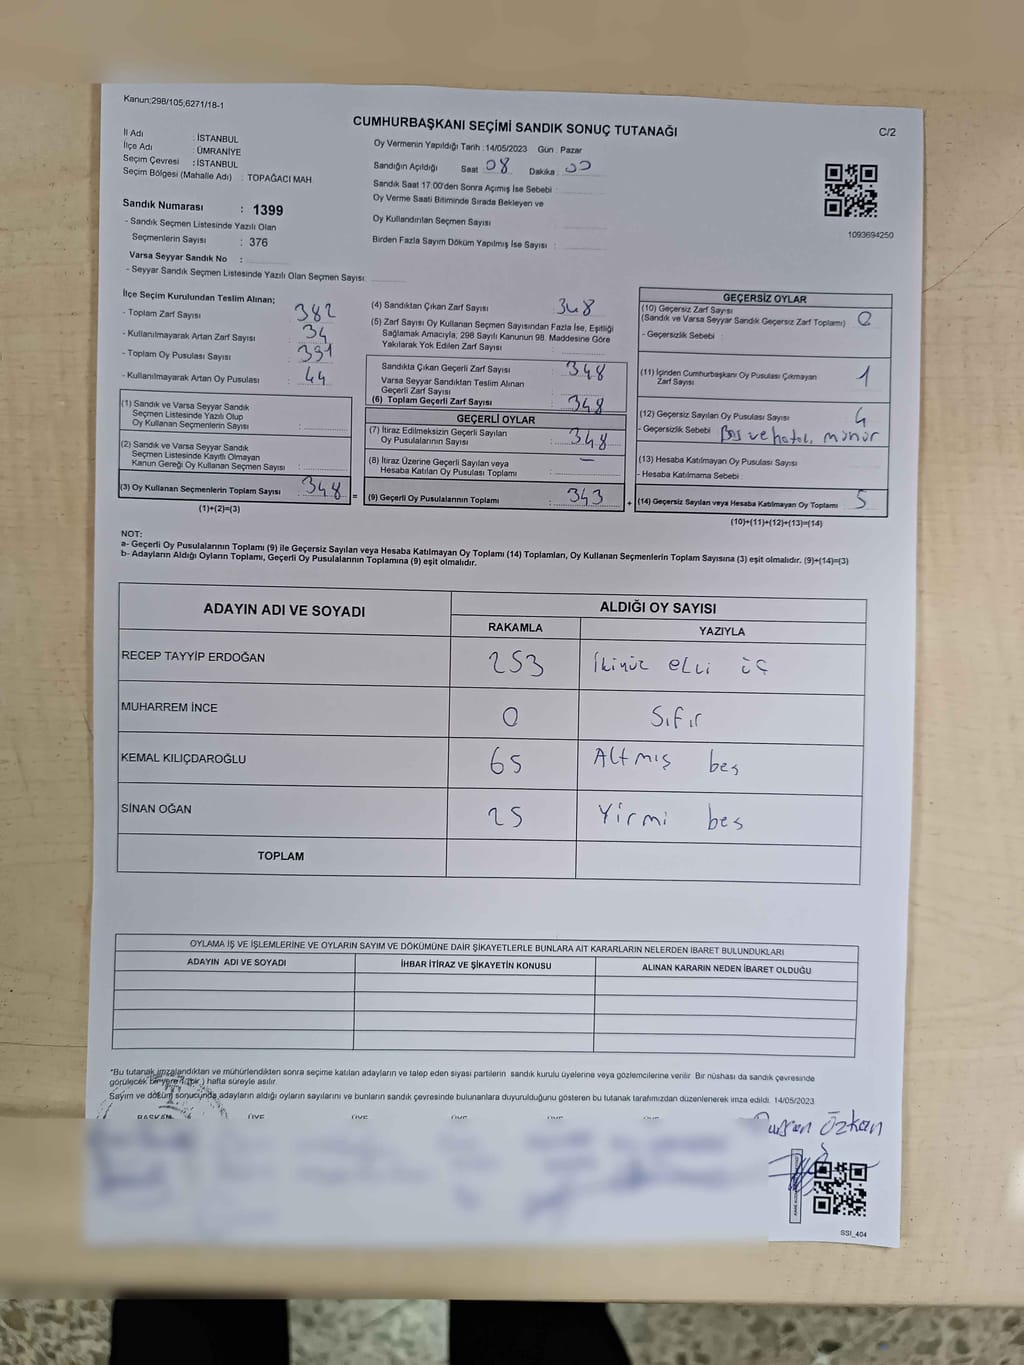 Kanun;298/105,6271/18-1
CUMHURBAŞKANI SEÇİMİ SANDIK SONUÇ TUTANAĞI
C/2
İl Adı : İSTANBUL
İlçe Adı : ÜMRANİYE
Seçim Çevresi : İSTANBUL
Seçim Bölgesi (Mahalle Adı) : TOPAĞACI MAH.
Oy Vermenin Yapıldığı Tarih :14/05/2023 Gün : Pazar
Sandığın Açıldığı Saat 08 Dakika 00
Sandık Saat 17:00'den Sonra Açımış İse Sebebi :
Oy Verme Saati Bitiminde Sırada Bekleyen ve
Oy Kullandırılan Seçmen Sayısı
Birden Fazla Sayım Döküm Yapılmış İse Sayısı :
1093694250
Sandık Numarası : 1399
- Sandık Seçmen Listesinde Yazılı Olan
Seçmenlerin Sayısı : 376
Varsa Seyyar Sandık No :
- Seyyar Sandık Seçmen Listesinde Yazılı Olan Seçmen Sayısı:
İlçe Seçim Kurulundan Teslim Alınan;
- Toplam Zarf Sayısı : 382
- Kullanılmayarak Artan Zarf Sayısı : 34
- Toplam Oy Pusulası Sayısı : 391
- Kullanılmayarak Artan Oy Pusulası : 44
(1) Sandık ve Varsa Seyyar Sandık
Seçmen Listesinde Yazılı Olup
Oy Kullanan Seçmenlerin Sayısı :
(2) Sandık ve Varsa Seyyar Sandık
Seçmen Listesinde Kayıtlı Olmayan
Kanun Gereği Oy Kullanan Seçmen Sayısı :
(3) Oy Kullanan Seçmenlerin Toplam Sayısı : 348
(1)+(2)=(3)
=
(4) Sandıktan Çıkan Zarf Sayısı : 348
(5) Zarf Sayısı Oy Kullanan Seçmen Sayısından Fazla İse, Eşitliği
Sağlamak Amacıyla, 298 Sayılı Kanunun 98. Maddesine Göre
Yakılarak Yok Edilen Zarf Sayısı :
Sandıkta Çıkan Geçerli Zarf Sayısı : 348
Varsa Seyyar Sandıktan Teslim Alınan
Geçerli Zarf Sayısı
(6) Toplam Geçerli Zarf Sayısı : 348
GEÇERLİ OYLAR
(7) İtiraz Edilmeksizin Geçerli Sayılan
Oy Pusulalarının Sayısı : 348
(8) İtiraz Üzerine Geçerli Sayılan veya
Hesaba Katılan Oy Pusulası Toplamı : —
(9) Geçerli Oy Pusulalarının Toplamı : 343
+
GEÇERSİZ OYLAR
(10) Geçersiz Zarf Sayısı
(Sandık ve Varsa Seyyar Sandık Geçersiz Zarf Toplamı) : 0
- Geçersizlik Sebebi :
(11) İçinden Cumhurbaşkanı Oy Pusulası Çıkmayan
Zarf Sayısı 1
(12) Geçersiz Sayılan Oy Pusulası Sayısı : 4
- Geçersizlik Sebebi : Boş ve hatalı mühür
(13) Hesaba Katılmayan Oy Pusulası Sayısı :
- Hesaba Katılmama Sebebi :
(14) Geçersiz Sayılan veya Hesaba Katılmayan Oy Toplamı : 5
(10)+(11)+(12)+(13)=(14)
NOT:
a- Geçerli Oy Pusulalarının Toplamı (9) ile Geçersiz Sayılan veya Hesaba Katılmayan Oy Toplamı (14) Toplamları, Oy Kullanan Seçmenlerin Toplam Sayısına (3) eşit olmalıdır. (9)+(14)=(3)
b- Adayların Aldığı Oyların Toplamı, Geçerli Oy Pusulalarının Toplamına (9) eşit olmalıdır.
ADAYIN ADI VE SOYADI
ALDIĞI OY SAYISI
RAKAMLA YAZIYLA
RECEP TAYYİP ERDOĞAN 253 ikiyüz elli üç
MUHARREM İNCE 0 Sıfır
KEMAL KILIÇDAROĞLU 65 Altmış beş
SİNAN OĞAN 25 Yirmi beş
TOPLAM
OYLAMA İŞ VE İŞLEMLERİNE VE OYLARIN SAYIM VE DÖKÜMÜNE DAİR ŞİKAYETLERLE BUNLARA AİT KARARLARIN NELERDEN İBARET BULUNDUKLARI
ADAYIN ADI VE SOYADI İHBAR İTİRAZ VE ŞİKAYETİN KONUSU ALINAN KARARIN NEDEN İBARET OLDUĞU
*Bu tutanak imzalandıktan ve mühürlendikten sonra seçime katılan adayların ve talep eden siyasi partilerin sandık kurulu üyelerine veya gözlemcilerine verilir. Bir nüshası da sandık çevresinde
görülecek bir yere 1 (bir) hafta süreyle asılır.
Sayım ve döküm sonucunda adayların aldığı oyların sayılarını ve bunların sandık çevresinde bulunanlara duyurulduğunu gösteren bu tutanak tarafımızdan düzenlenerek imza edildi. 14/05/2023
BAŞKAN ÜYE ÜYE ÜYE ÜYE ÜYE
Özkan
SSI_404